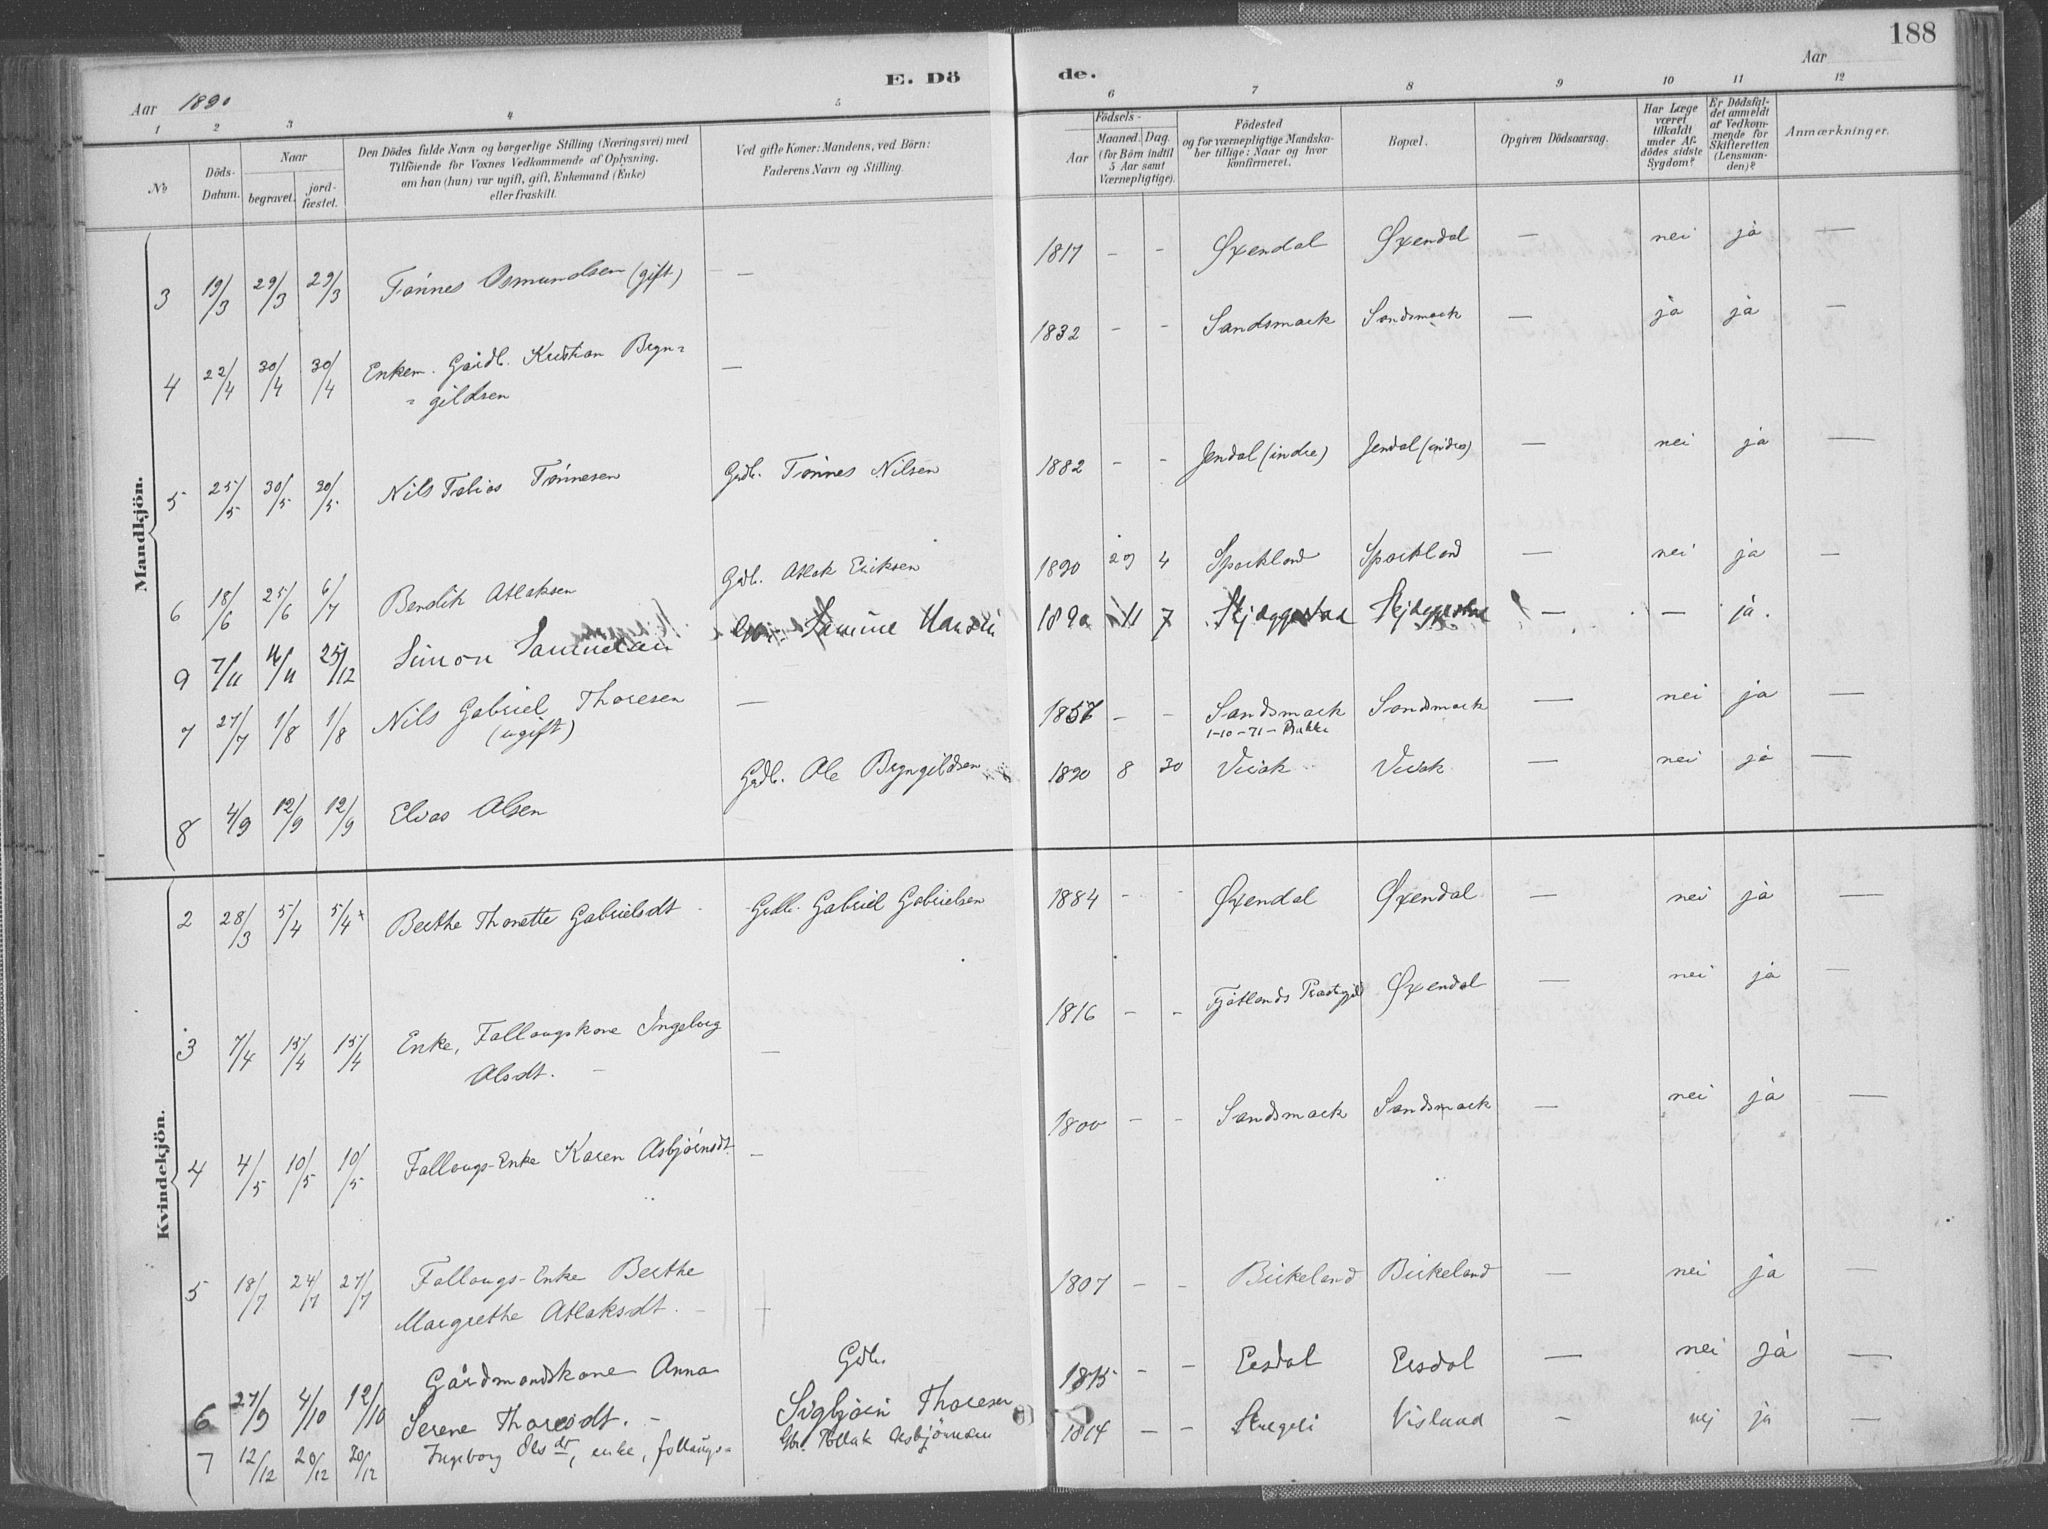 188
E. Döde.
Aar 1890
Aar
1 2 3 4 5 6 7 8 9 10 11 12
No
Döds-Datum.
Naar
begravet.
jord-fæstet.
Den Dödes fulde Navn og borgerlige Stilling (Næringsvei) med
Tilföiende for Voxnes Vedkommende af Oplysning,
om han (hun) var ugift, gift, Enkemand (Enke)
eller fraskilt.
Ved gifte Koner: Mandens, ved Börn:
Faderens Navn og Stilling.
Födsels-
Aar
Maaned. Dag.
(for Börn indtil
5 Aar samt
Værnepligtige).
Födested
og for værnepligtige Mandska-
ber tillige: Naar og hvor
konfirmeret.
Bopæl.
Opgiven Dödsaarsag.
Har Læge
været
tilkaldt
under Af-
dödes sidste
Sygdom?
Er Dödsfal-
det anmeldt
af Vedkom-
mende for
Skifteretten
(Lensman-
den)?
Anmærkninger.
Mandkjön.
3 19/3 29/3 29/3 Tønnes Osmundsen (gift) — 1817 - - Øxendal Øxendal — nei ja —
4 22/4 30/4 30/4 Enkem. Gårdb. Kristian Bryn=
=gildsen — 1832 - - Sandsmark Sandsmark — ja ja —
5 25/5 30/5 30/5 Nils Tobias Tønnesen Grdb. Tønnes Nilsen 1882 - - Jendal (indre) Jendal (indre) — nei ja —
6 18/6 25/6 6/7 Bendik Atlaksen Grdb. Atlak Eriksen 1890 29 4 Sporkland Sporkland — nei ja —
9 7/11 11/11 25/12 Simon Samuelsen Samuel Hansen 1890 11 7 Skjeggestad Skjeggestad — — ja.
7 27/7 1/8 1/8 Nils Gabriel Thoresen
(ugift) — 1857 - - Sandsmark Sandsmark — nei ja —
1-10-71- Bakke
8 4/9 12/9 12/9 Elvas Olsen Grdb. Ole Bryngildsen 1890 8 30 Virak Virak — nei ja —
Kvindekjön.
2 28/3 5/4 5/4 Berthe Thonette Gabrielsdt - Grdb. Gabriel Gabrielsen 1884 - - Øxendal Øxendal — nei ja —
3 7/4 15/4 15/4 Enke, Follaugskone Ingeborg
Olsdt. — 1816 - - Fjotlands Præstegjeld Øxendal — nei ja —
4 4/5 10/5 10/5 Follaugs-Enke Karen Asbjørnsdt. — 1800 - - Sandsmark Sandsmark — nei ja —
5 18/7 24/7 27/7 Follaugs-Enke Berthe
Margrethe Atlaksdt. - 1807 - - Birkeland Birkeland — nei ja —
6 27/9 4/10 12/10 Gårdmandskone Anna
Serene Thoresdt. - Grdb.
Sigbjørn Thoresen 1815 - - Eesdal Eesdal — nei ja —
7 12/12 20/12 20/12 Ingeborg Olsdr, enke, follaugs= Gbr. Tollak Asbjörnsen 1814 - - Visland - nej ja